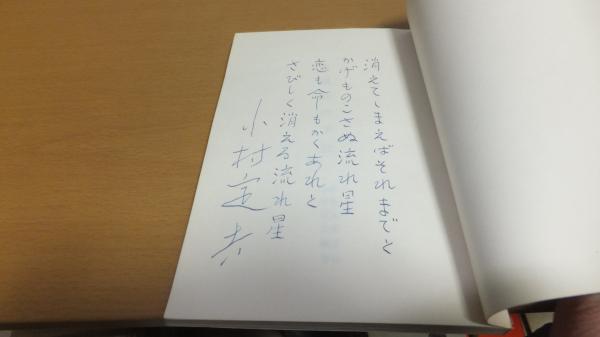 消えてしまえばそれまでと
かげものこさぬ流れ星
恋も命もかくあれと
さびしく消える流れ星
小村定吉